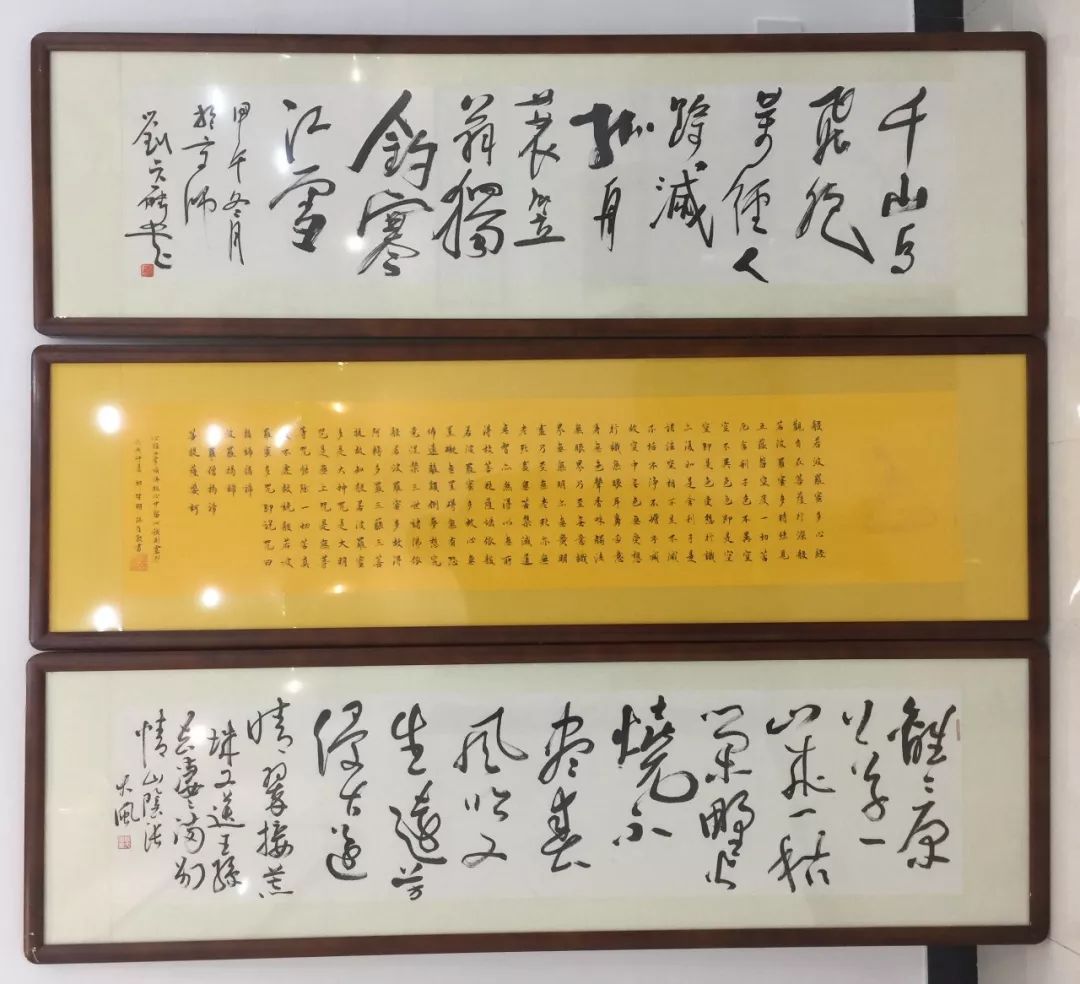 千山鸟
飛絕
萬徑人
踪滅
孤舟
蓑笠
翁獨
釣寒
江雪
甲午冬月
於京師
般若波羅蜜多心經
觀自在菩薩行深般
若波羅蜜多時照見
五蘊皆空度一切苦
厄舍利子色不異空
空不異色色即是空
空即是色受想行識
亦復如是舍利子是
諸法空相不生不滅
不垢不淨不增不減
故空中無色無受想
行識無眼耳鼻舌意
身無色聲香味觸法
無眼界乃至無意識
界無無明亦無無明
盡乃至無老死亦無
老死盡無苦集滅道
無智亦無得以無所
得故菩提薩埵依般
若波羅蜜多故心無
罣礙無罣礙無有恐
怖遠離顛倒夢想究
竟涅槃三世諸佛依
般若波羅蜜多故得
阿耨多羅三藐三菩
提故知般若波羅蜜
多是大神咒是大明
咒是無上咒是無等
等咒能除一切苦真
實不虛故說般若波
羅蜜多咒即說咒曰
揭諦揭諦
波羅揭諦
波羅僧揭諦
菩提薩婆訶
離離原
上草一
歲一枯
榮野火
燒不
盡春
風吹又
生遠芳
侵古道
晴翠接荒
城又送王孫
去萋萋滿別
情山陰張
大風